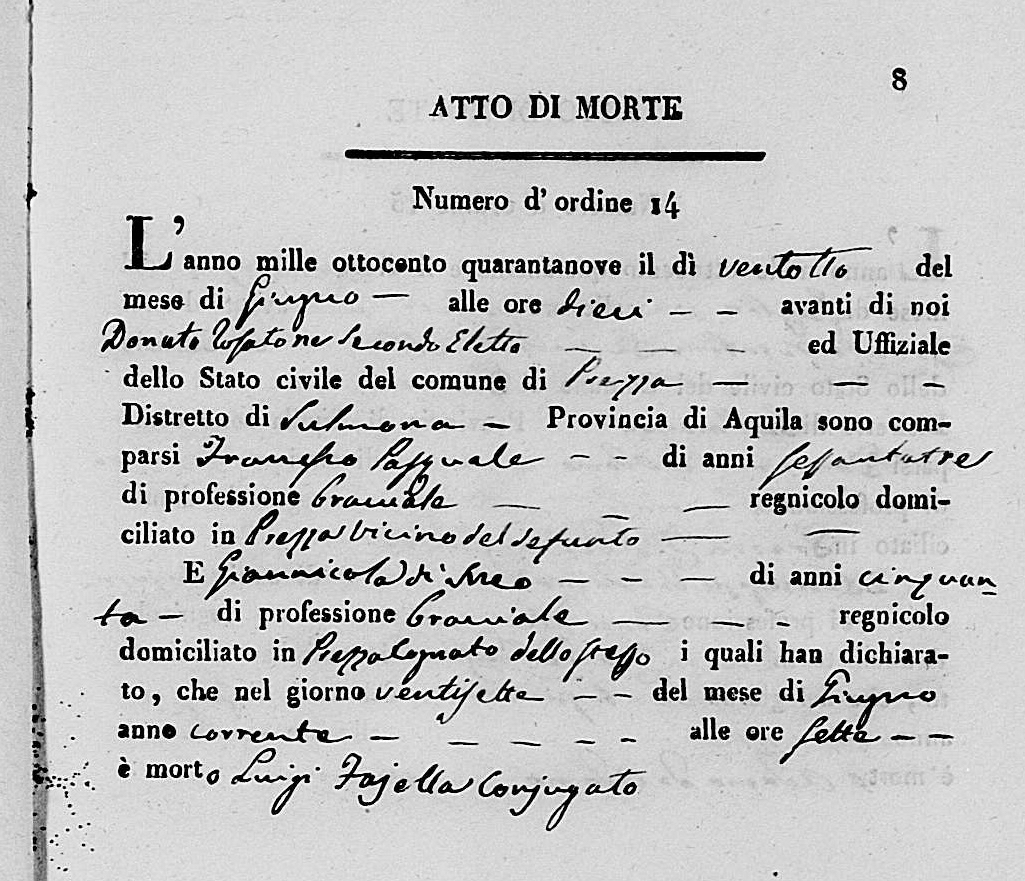 8
ATTO DI MORTE
Numero d' ordine 14
L' anno mille ottocento quarantanove il dì ventotto del
mese di Giugno — alle ore dieci — — avanti di noi
Donato Secondo Eletto — — — ed Uffiziale
dello Stato civile del comune di Prezza — — —
Distretto di Sulmona — Provincia di Aquila sono com-
parsi Francesco Pasquale — — di anni sessantatre
di professione bracciale — — — regnicolo domi-
ciliato in Prezza vicino del defunto — —
E Giannicola di — — — di anni cinquan
ta — di professione bracciale — — — regnicolo
domiciliato in Prezza Cognato dello stesso i quali han dichiara-
to, che nel giorno ventisette — — del mese di Giugno
anno corrente — — — — — alle ore sette — —
è morto Luigi Fajella Conjugato